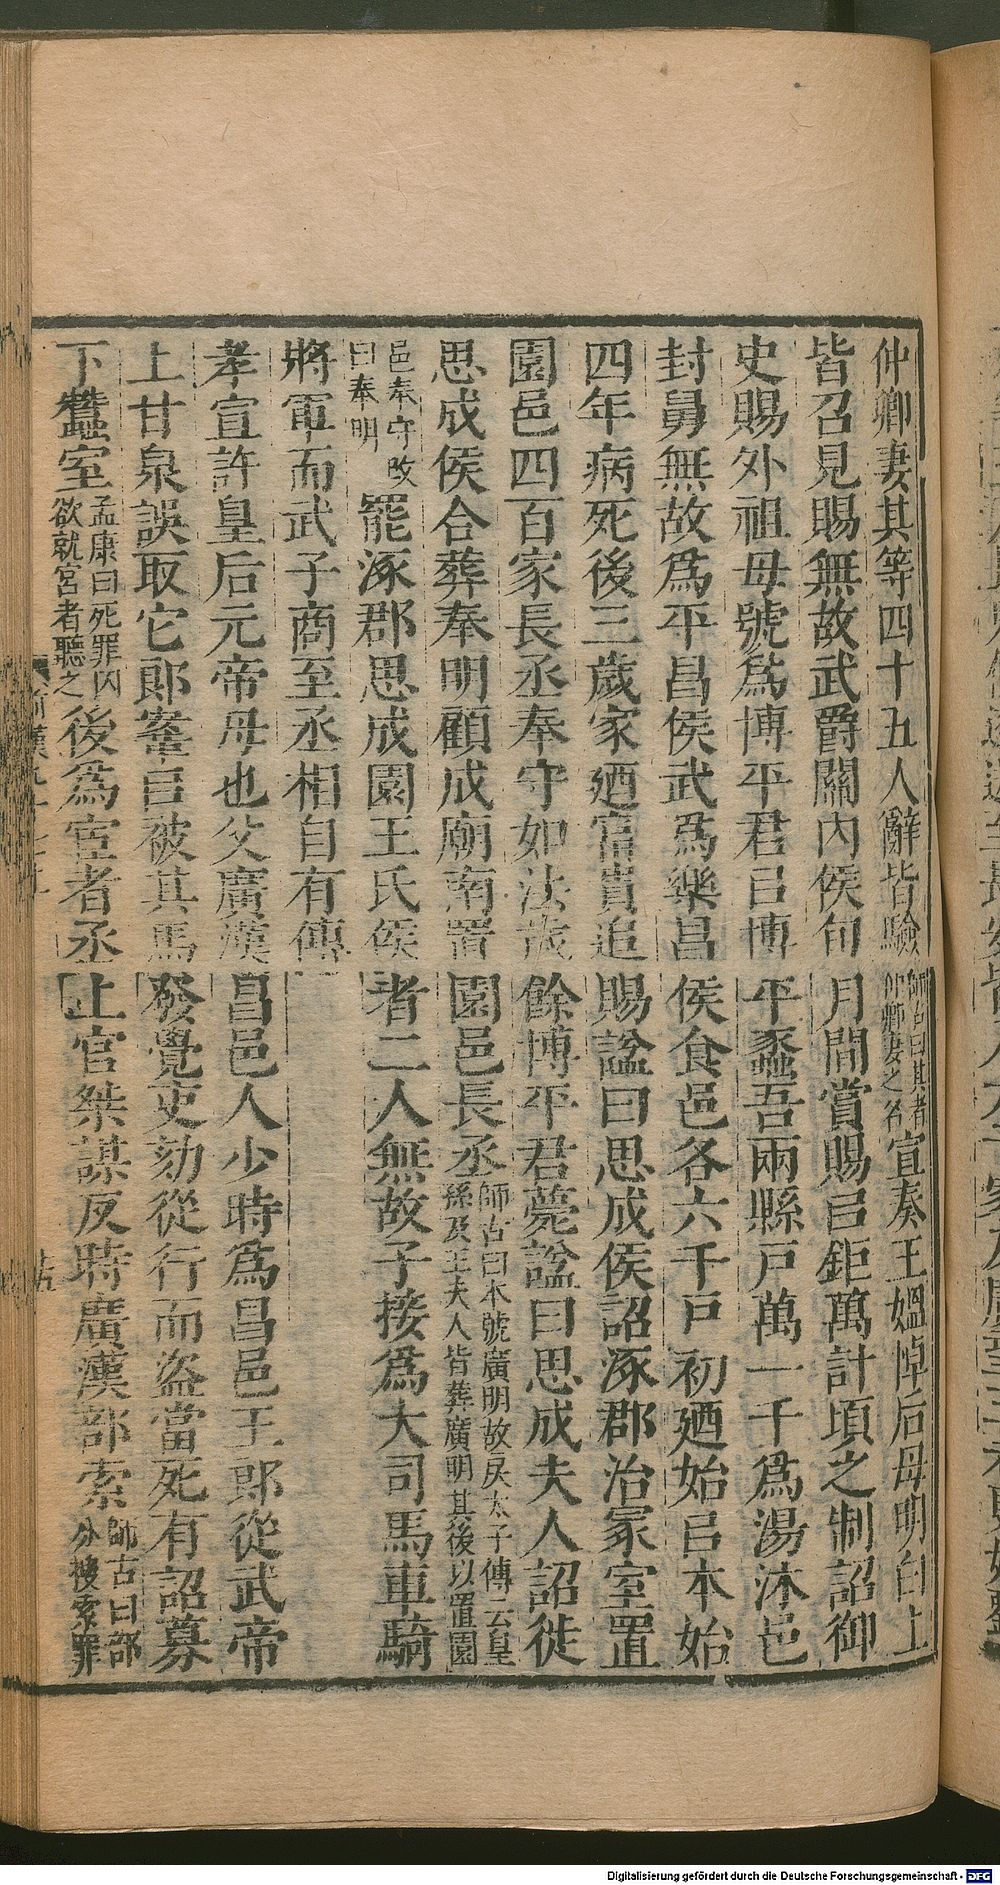 仲卿妻其等四十五人辭皆驗師古曰其者仲卿妻之名宣奏王媼悼后母明白上
皆召見賜無故武爵關內侯旬月間賞賜㠯鉅萬計頃之制詔御
史賜外祖母號爲博平君㠯博平蠡吾兩縣戶萬一千爲湯沐邑
封舅無故爲平昌侯武爲樂昌侯食邑各六千戶初廼始㠯本始
四年病死後三歲家廼富貴追賜諡曰思成侯詔涿郡治冢室置
園邑四百家長丞奉守如法歲餘博平君薨諡曰思成夫人詔徙
思成侯合葬奉明顧成廟南置園邑長丞師古曰本號廣明故戾太子傳云皇孫及王夫人皆葬廣明其後以置園
邑奉守改曰奉明罷涿郡思成園王氏侯者二人無故子接爲大司馬車騎
將軍而武子商至丞相自有傳
孝宣許皇后元帝母也父廣漢昌邑人少時爲昌邑王郎從武帝
上甘泉誤取它郎鞌㠯被其馬發覺吏劾從行而盜當死有詔募
下蠶室孟康曰死罪囚欲就宮者聽之後爲宦者丞上官桀謀反時廣漢部索師古曰部分搜索罪
十五
Digitalisierung gefördert durch die Deutsche Forschungsgemeinschaft - DFG